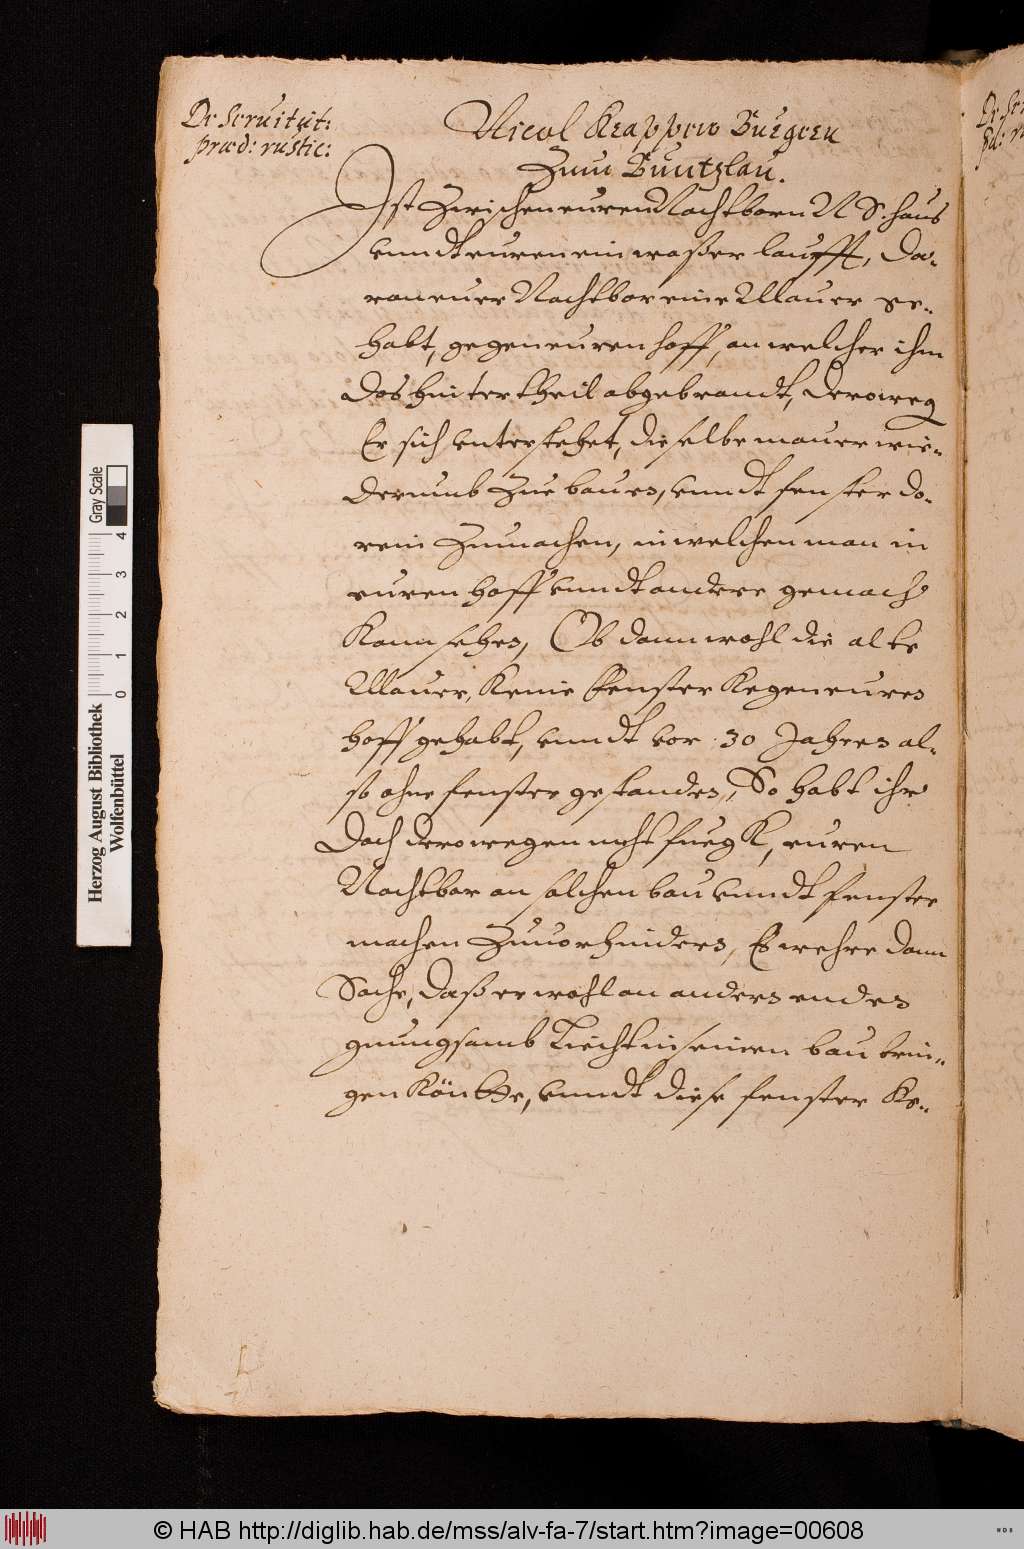 De Seruitut:
præd: rustic:
Nicol Krappen Bürgern
Zum Buntzlau.
Ist Zwischen euren Nachtborn N S. haus
vnndt euren ein waßer laufft, Da-
ran euer Nachtbor eine Mauer ge-
habt, gegen euren hoff, an welcher ihm
das hintertheil abgebrandt, deroweg
Er sich vnterstehet, dieselbe mauer wie-
derumb Zue bauen, vnndt fenster do-
rein Zumachen, in welchen man in
euren hoff vnndt andere gemach
Kann sehen, Ob dann wohl die alte
Mauer, Keine Fenster Kegen euren
hoff gehabt, vnndt vor :30 Jahren al-
so ohne fenster gestanden, So habt ihr
Doch derowegen nicht fueg, euren
Nachtbar an solchen bau vnndt fenster
machen Zuuorhindern, Es wehre dann
Sache, Daß er wohl an andern enden
gnungsamb Liecht in seinen bau brin-
gen Köntte, vnndt diese fenster Ke-
De Ser
præ: r
Herzog August Bibliothek
Wolfenbüttel
0 1 2 3 4
Gray Scale
© HAB http://diglib.hab.de/mss/alv-fa-7/start.htm?image=00608